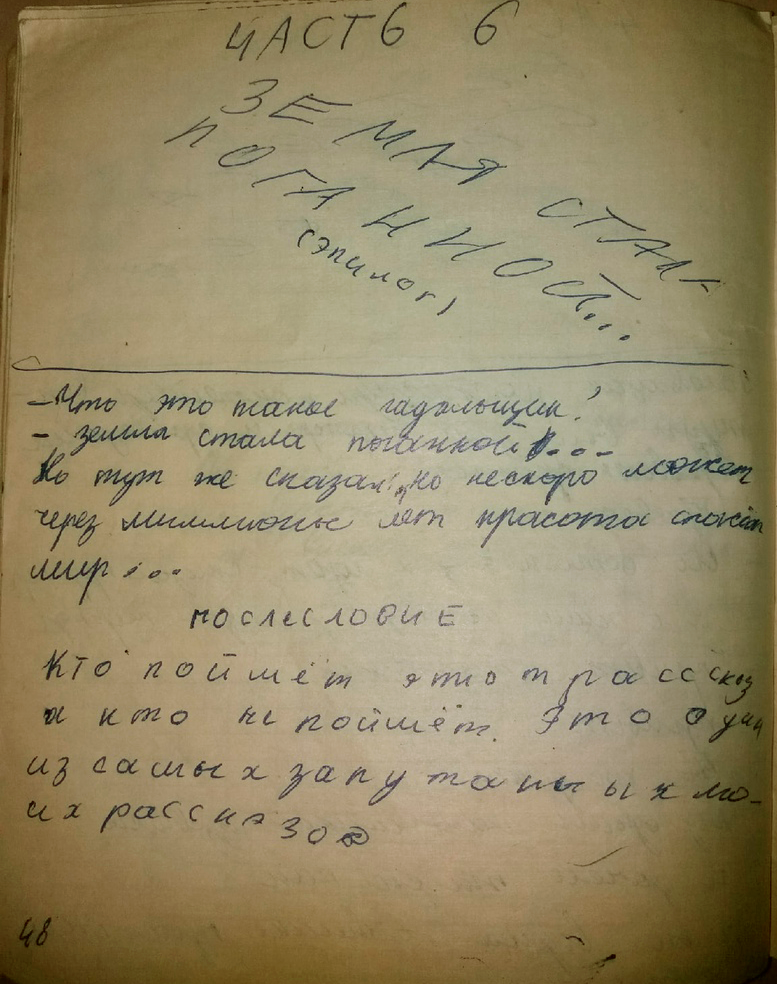 ЧАСТЬ 6
ЗЕМЛЯ СТАЛА
ПОГАННОЙ...
(эпилог)
- Что это такое гадальщик!
- земля стала поганной...
Но тут же сказал: "но нескоро может
через миллионы лет красота спасёт
мир...
ПОСЛЕСЛОВИЕ
Кто поймёт этот рассказ
а кто не поймёт. Это один
из самых запутаных мо-
их рассказов
48